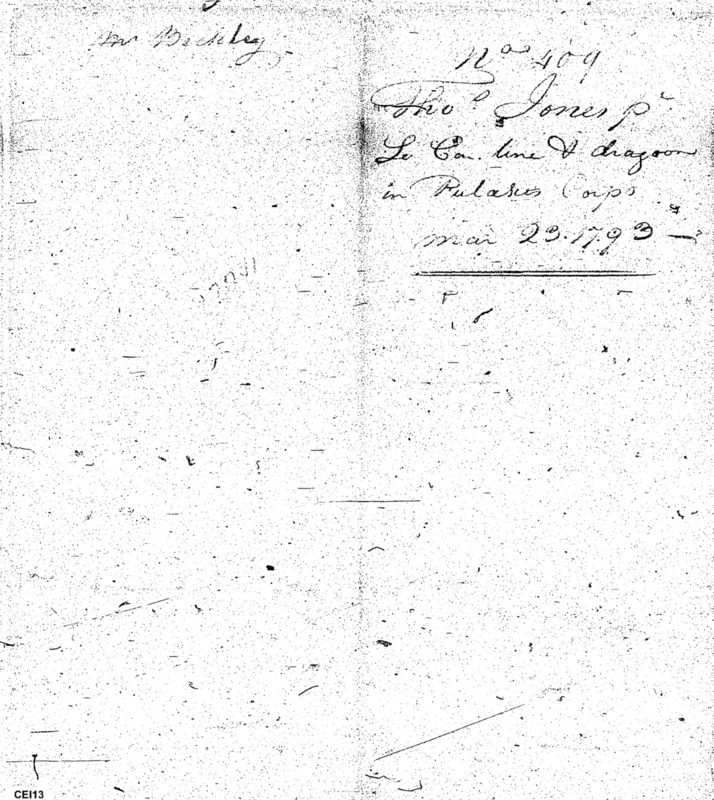 Mr Beckley
No 409
Thos Jones pt
So Car. line & dragoon
in Pulaskis Corps
mar 23. 1793
CEI13